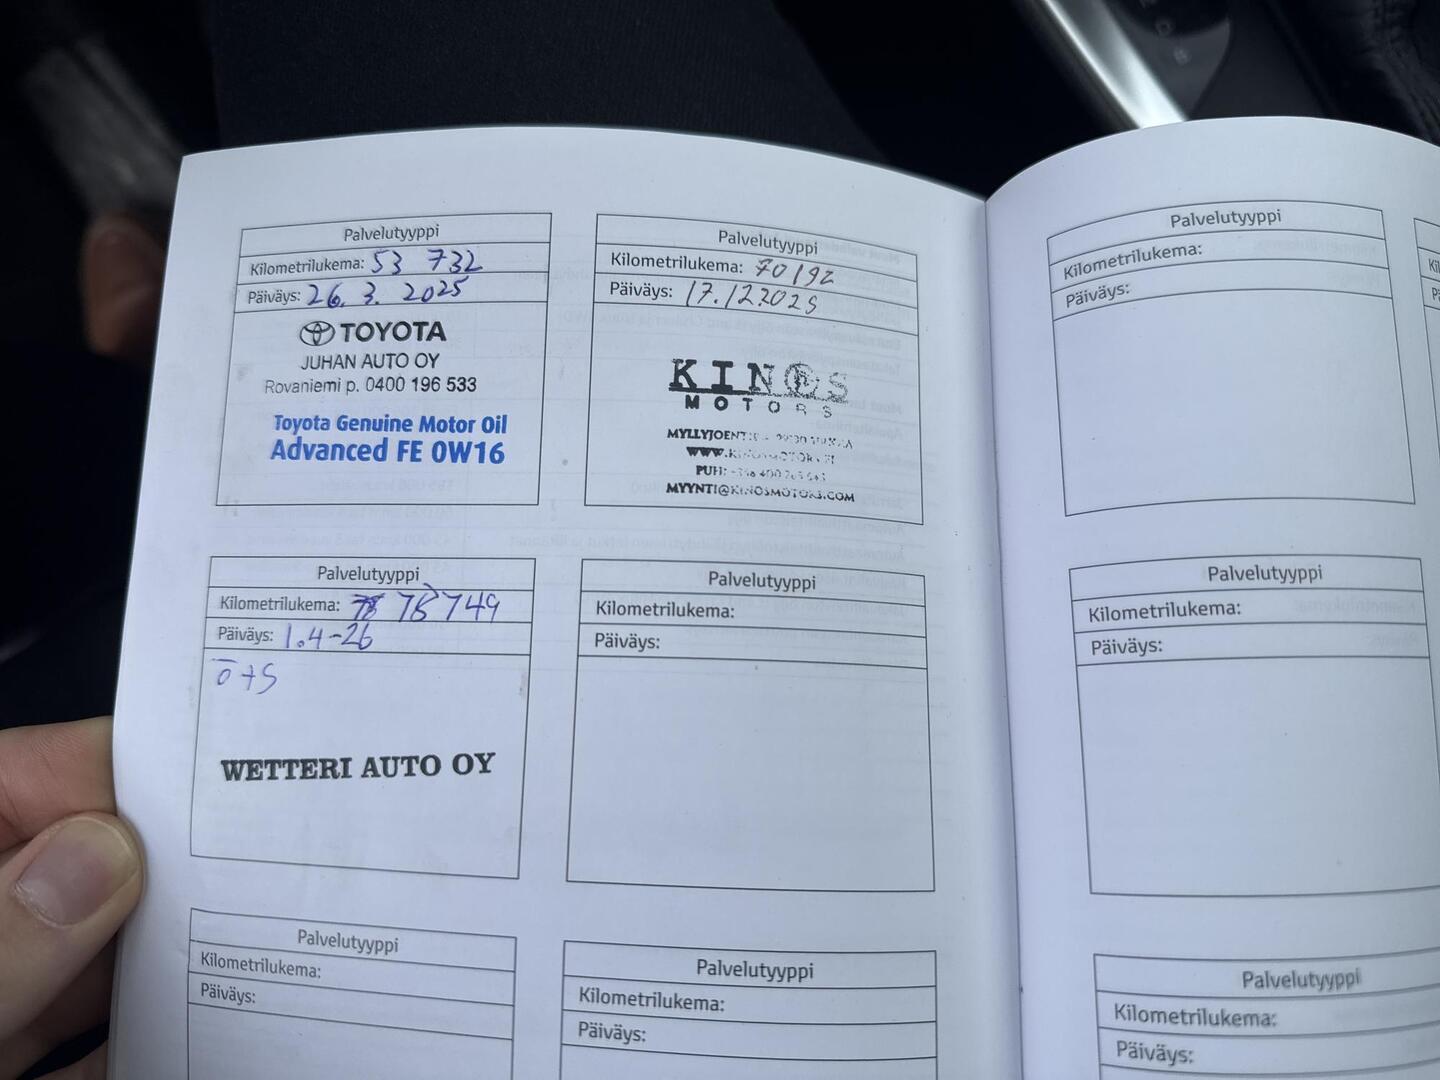 Palvelutyyppi
Kilometrilukema: 53 732
Päiväys: 26. 3. 2025
TOYOTA
JUHAN AUTO OY
Rovaniemi p. 0400 196 533
Toyota Genuine Motor Oil
Advanced FE 0W16
Palvelutyyppi
Kilometrilukema: 70192
Päiväys: 17.12.2025
KINOS
MOTORS
PUH:
MYYNTI@KINOSMOTORS.COM
Palvelutyyppi
Kilometrilukema: 78 749
Päiväys: 1.4-26
ö+S
WETTERI AUTO OY
Palvelutyyppi
Kilometrilukema:
Päiväys:
Palvelutyyppi
Kilometrilukema:
Päiväys:
Palvelutyyppi
Kilometrilukema:
Päiväys:
Palvelutyyppi
Kilometrilukema:
Päiväys:
Palvelutyyppi
Kilometrilukema:
Päiväys:
Palvelutyyppi
Kilometrilukema:
Päiväys: